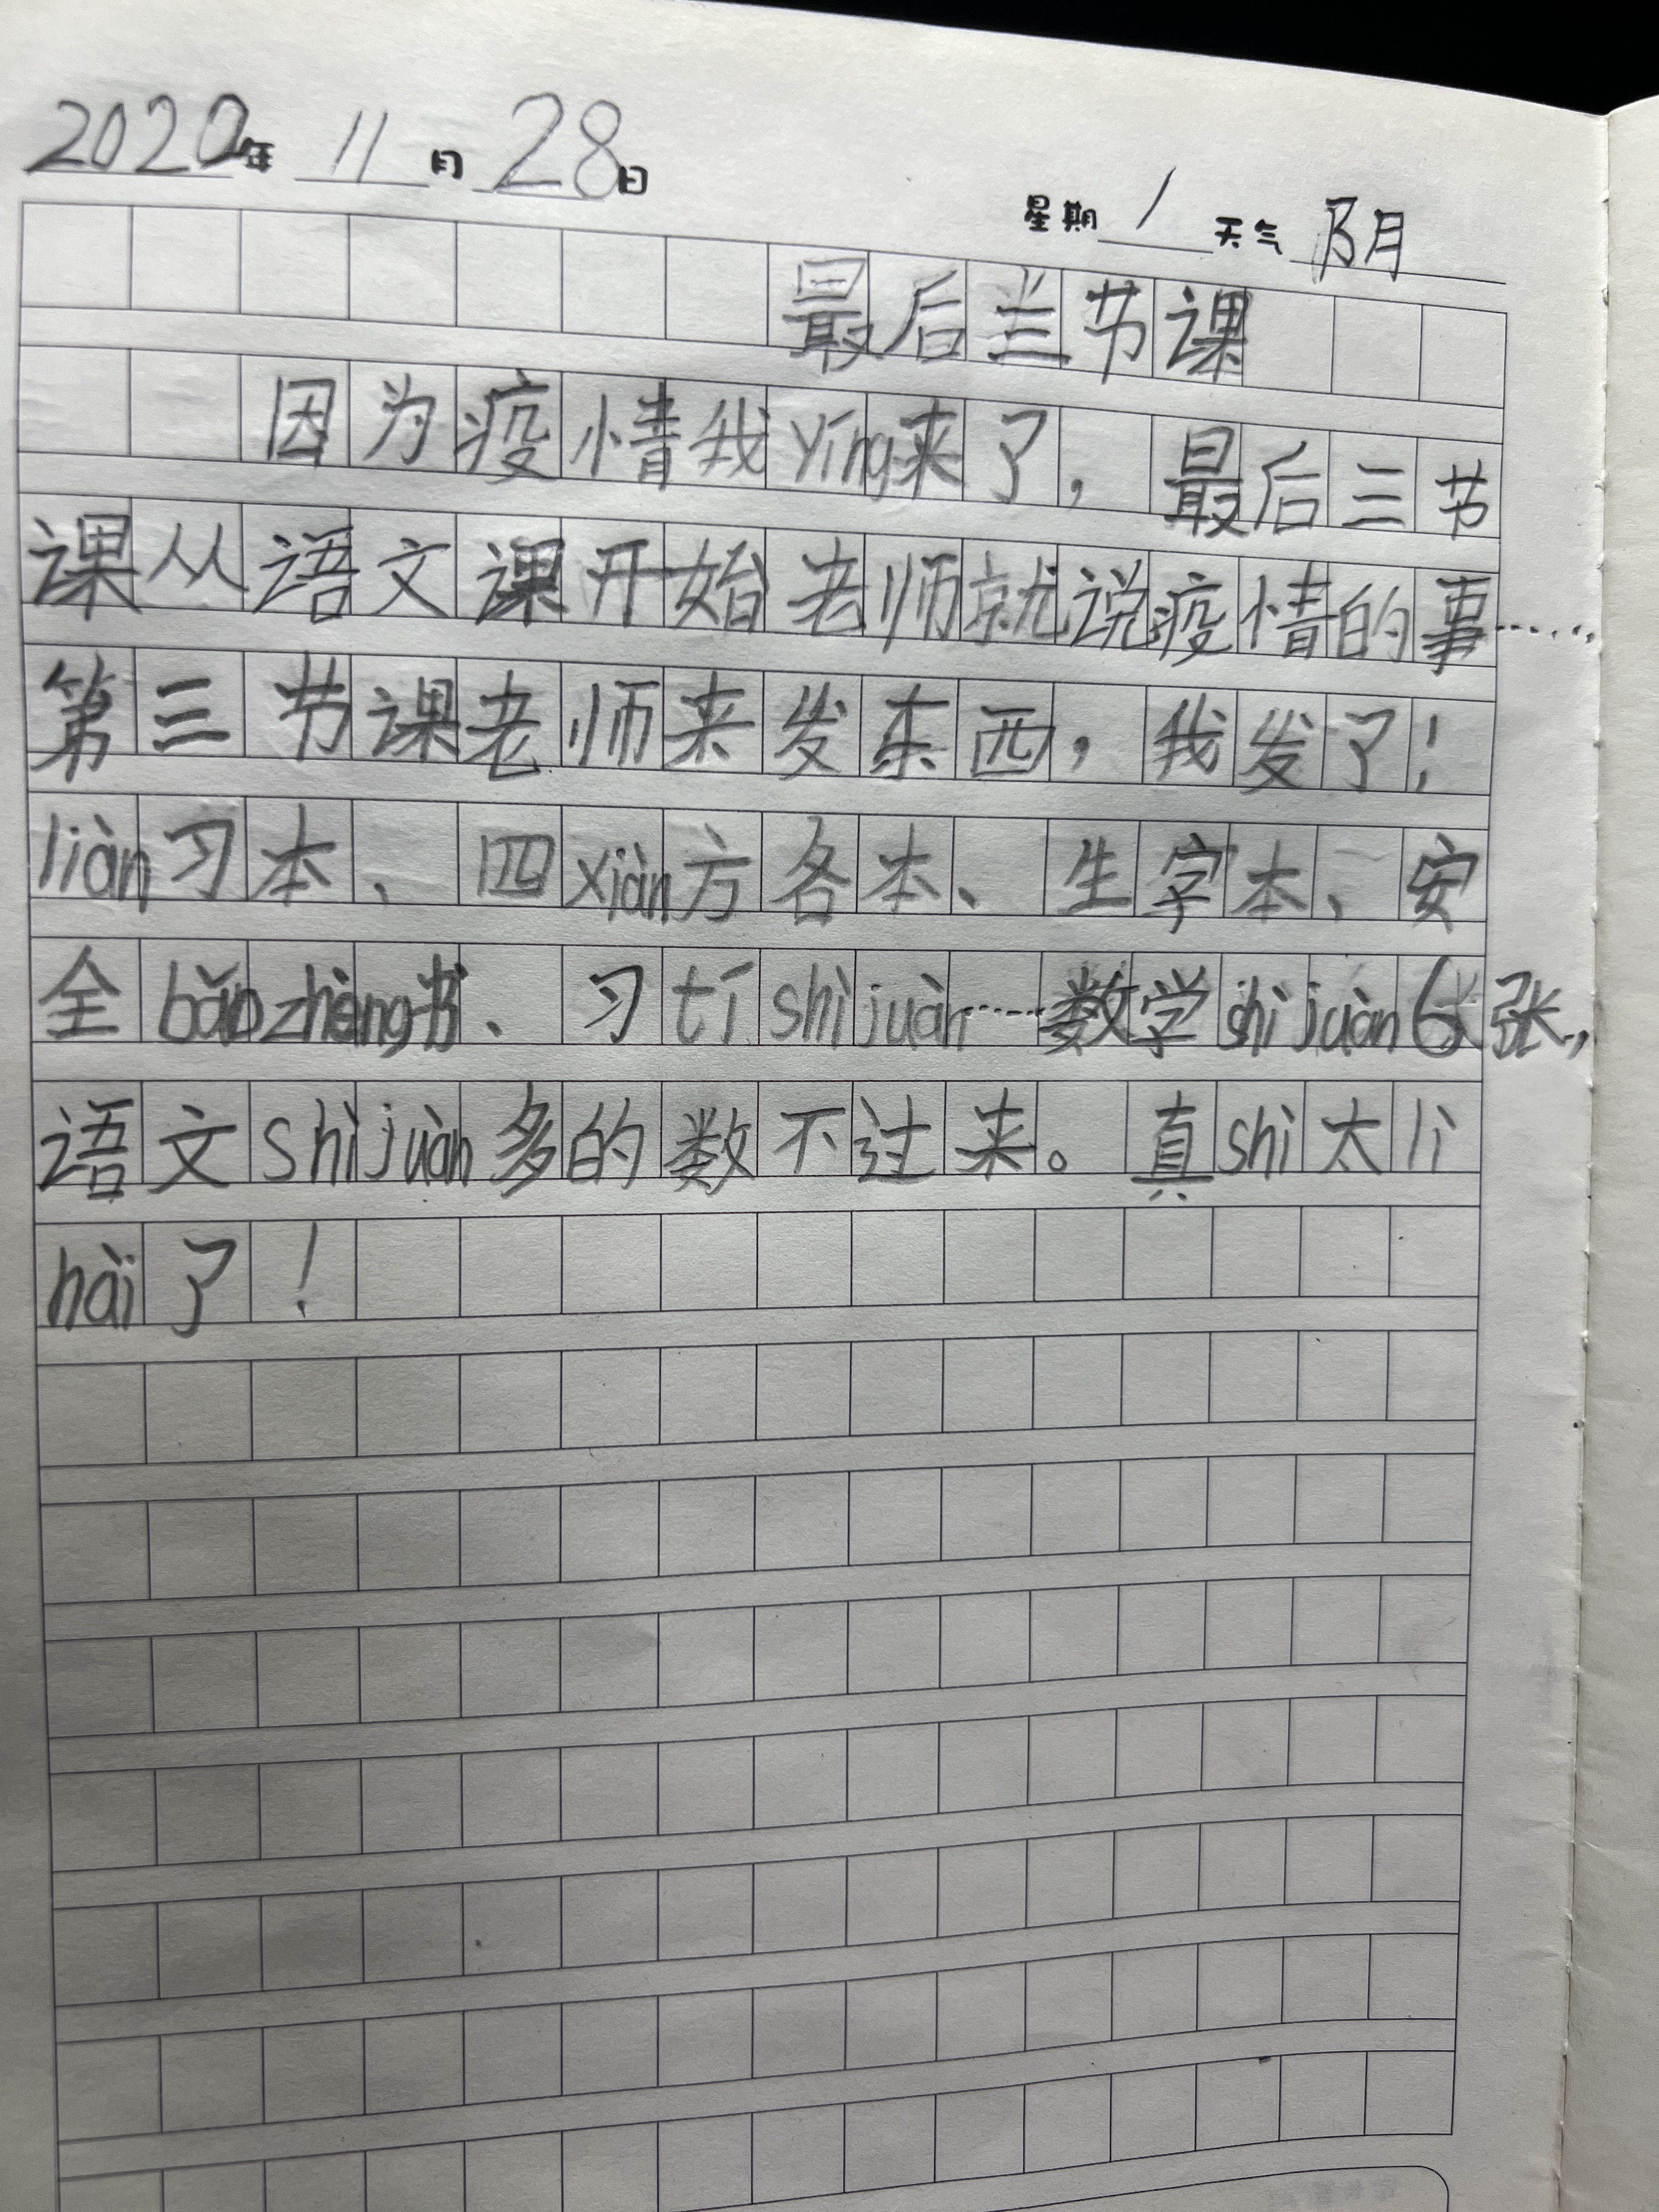 2022年 11月 28日
星期 1 天气 阴
最后兰节课
因为疫情我yíng来了，最后三节
课从语文课开始老师就说疫情的事……
第三节课老师来发东西，我发了！
liàn习本、四xiàn方各本、生字本、安
全bǎozhèng书、习tí shì juàn……数学shì juàn6张，
语文shì juàn多的数不过来。真shì太lì
hài了！